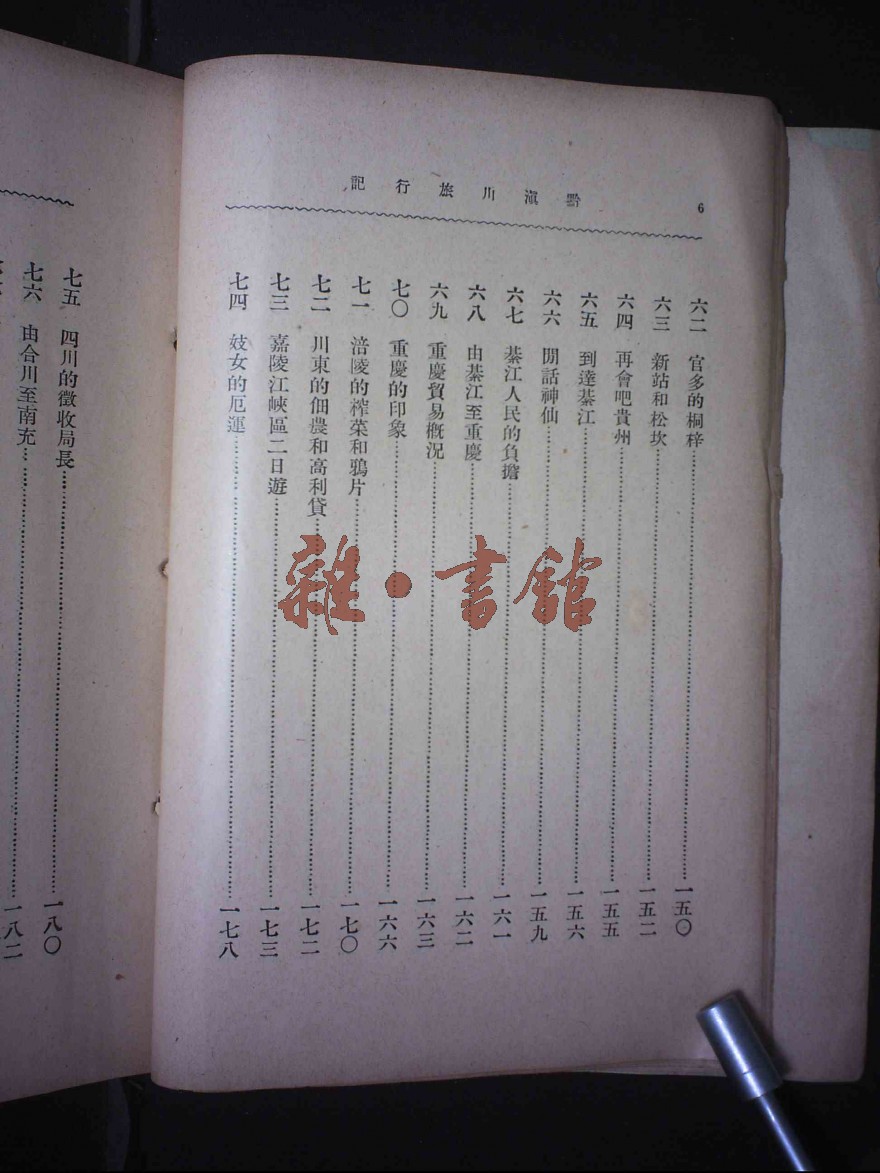 黔滇川旅行記
6
六二 官多的桐梓……一五〇
六三 新站和松坎……一五二
六四 再會吧貴州……一五五
六五 到達綦江……一五六
六六 閒話神仙……一五九
六七 綦江人民的負擔……一六一
六八 由綦江至重慶……一六二
六九 重慶貿易概況……一六三
七〇 重慶的印象……一六六
七一 涪陵的榨菜和鴉片……一七〇
七二 川東的佃農和高利貸……一七二
七三 嘉陵江峽區二日遊……一七三
七四 妓女的厄運……一七八
七五 四川的徵收局長……一八〇
七六 由合川至南充……一八二
雜·書館